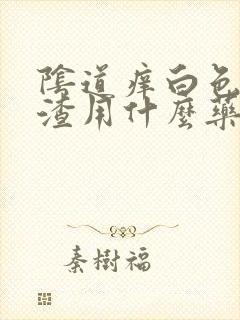 陰道痒白色
渣用什麼藥
秦樹福